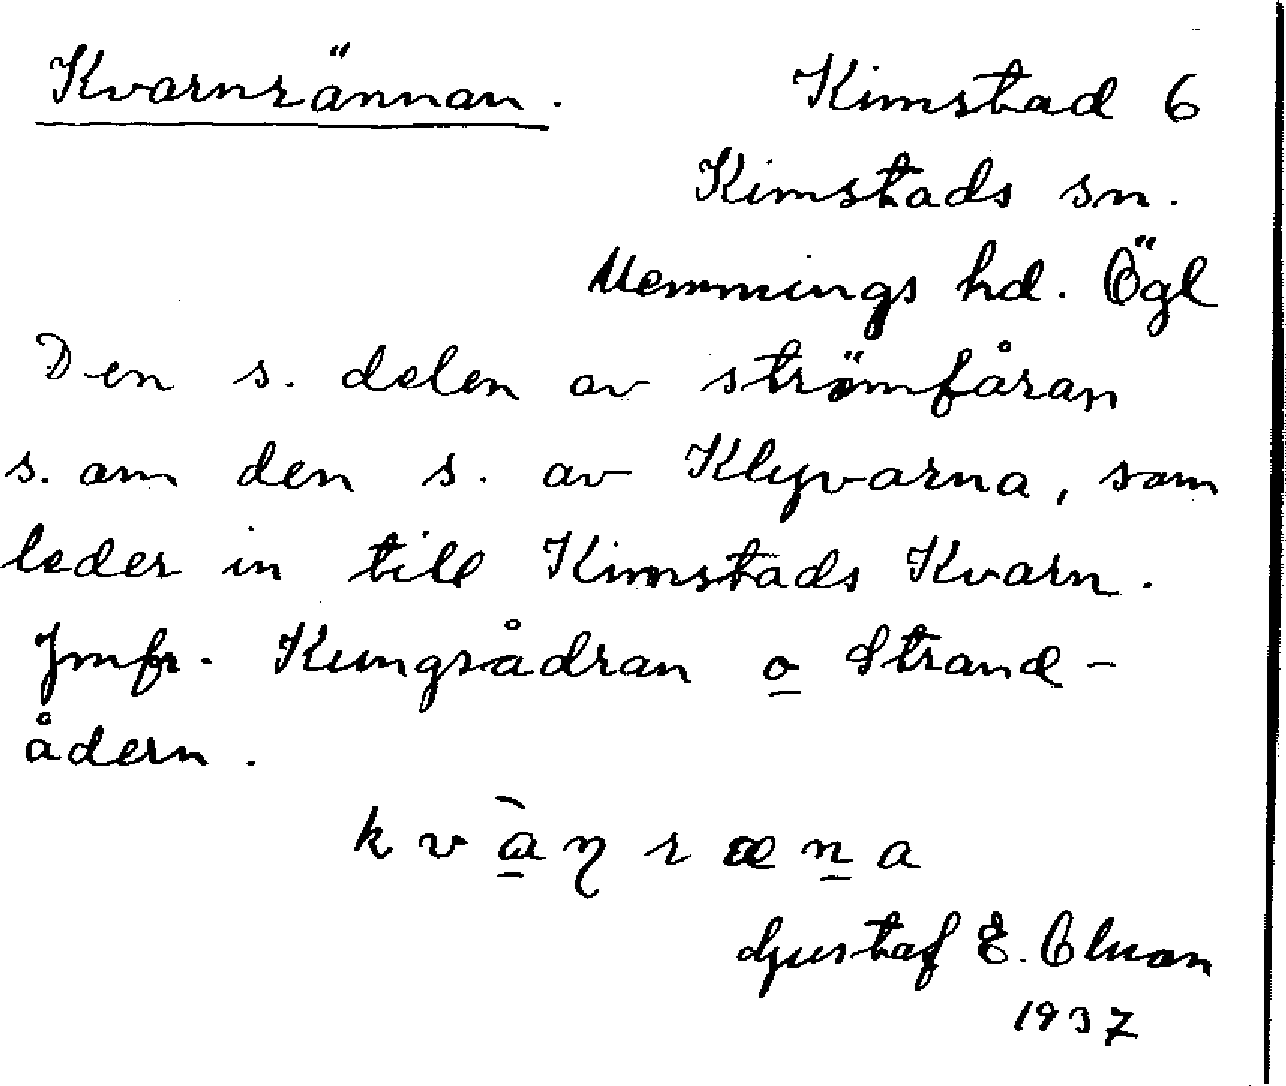 Kvarnrännan.
Kimstad 6
Kimstads sn.
Memmings hd. Ögl
Den s. delen av strömfåran
s. om den s. av Klyvarna, som
leder in till Kimstads Kvarn.
Jmfr. Kungsådran o Strand-
ådern.
k v à̲ ɳ r æ n̲ a
Gustaf E. Olson
1937